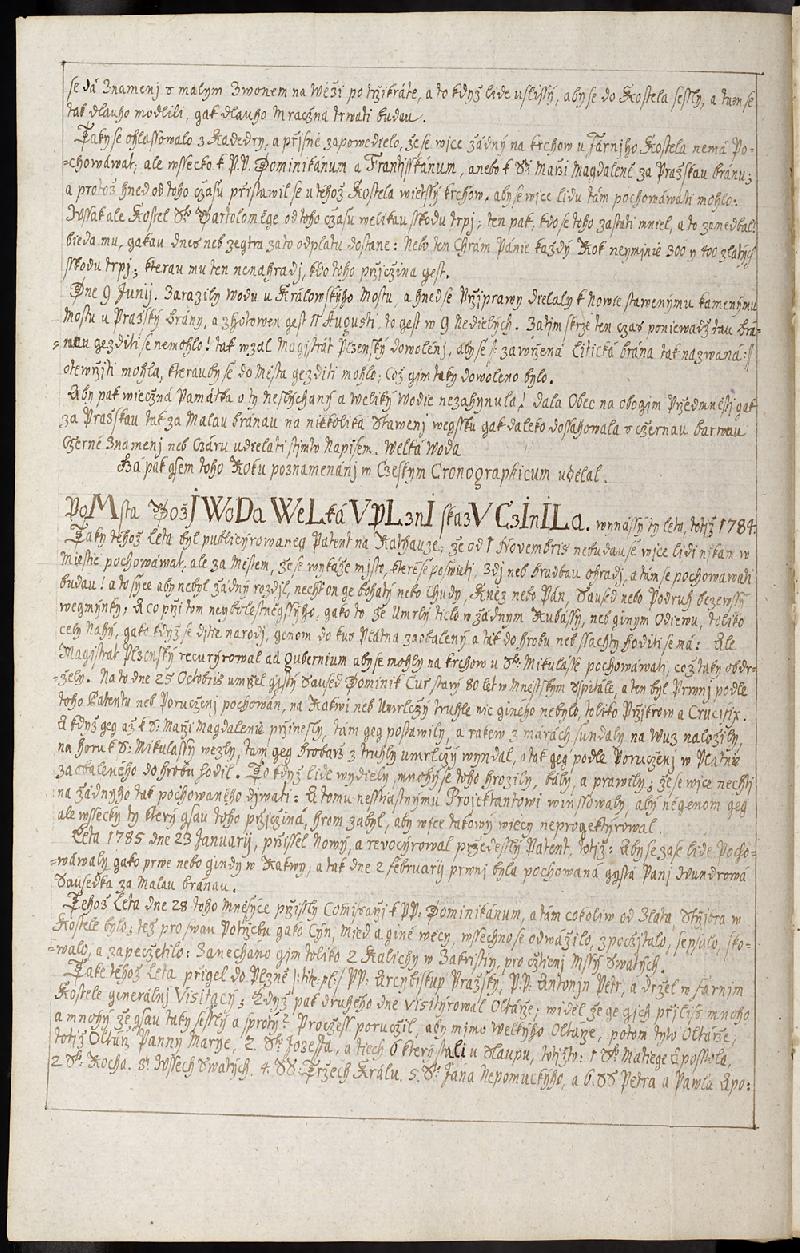 se dá Znamenj s malym Zwonem na Wěži po tržikráte, a to když lide uslissý, aby se do Kostela sessly, a tam se
tak dlauho modlili, gak dlauho Mračna trwati budau.
Taky se ohlassowalo z Kadedry, a přjsně zapowedielo, že se wjce žádný na krchow u Farnjho Kostela nemá Po-
=chowáwat; ale wssecko k P.P. Dominikánum a Frantisskánum, anebo k S: Maržj Magdaleně za Pražskau bránu;
a protož hned od toho času přistawil se u tehož Kostela wietssý krchow, aby se wjce lidu tám pochowáwati mohlo.
Wssak ale Kostel S: Bartoloměge od toho času welikau sskodu trpj; ten pak, kdo se teho zastáti miel, a to zanedbal
bieda mu, gakau dnes neb zegtra za to odplatu dostane: Nebo ten Chrám Pánie každý Rok neymjnie 300 y 400 zlatých
sskodu trpj; kterau mu ten nenahradj, kdo toho přjčzina gest.
Dne 9 Junij. Zarazily Wodu u Králowskýho Mostu, a hned se Přjprawy dielaly k Nowie stawenýmu kamenýmu
Mostu u Pražský Brány, a zhotowen gest 11 Augusti, to gest w 9 Nedielých. Zatim skrze ten czas poniewadž tau Brá-
=nau gezditi se nemohlo! tak wzal Magistrát Plzenský dowolenj, aby se ta zawržená Liticka brána tak nazwaná
otewřjti mohla, kterauby se do Města gezditi mohlo; Což gim taky dowoleno bylo.
Aby pak wieczná Památka o tý neslýchaný a Weliký Wodie nezahynula! Dala Obec na obogim Předmněstj gak
za Pražskau tak za Malau bránau na niekolika Stawenj wegssku gak daleko dosáhowala s czernau barwau
Czerné Znamenj neb Czáru udielati s tjmto Napisem. Welká Woda
Za pák gsem toho Roku poznamenánj w Czeskym Cronographicum udělal.
PoMsta BožJ WoDa WeLká V PLznI sskazV CzInILa. wynássý ty leta, totiž 1784.
Taky téhož Leta był publicyrowaneg Patent na Rathauze; že od 1 Novembris nebudau se wjce lidi nikam w
Miestie pochowáwat, ale za Městem, že se wykáže mjsto, kteréž se poswietj, Zdj neb hradbau ohradj, a tám se pochowáwati
budau! a to syce aby nebyl žádný rozdjl, nechť on ge bohatý nebo Chudý, Kněz nebo Pán, Saused nebo Podruh bezewssý
weymýnky: A co při tom neybolestnegssýho, gako to že Umrlý tielo w žádnym Rubássy, neb giným Odiewu, tolikto
cely Nahý, gako když se djtie narodj, genom do kus Plátna zaobalený a tak do hrobu neb ssachty hoditi se má: Ale
Magistrát Plzenský recurýrowal ad gubernium aby se mohly na krchow u S: Mikulásse pochowáwati, což taky obdr-
=želi. Na to dne 25 Octobris umržel gistý Saused Dominik Cuř starý 80 let w Mnestskym Sspitale, a ten był Prwnj podle
toho Patentu neb Poruczenj pochowán, na Rakwi neb Umrlczý truhle nic giného nebylo, tolikto Přjkrow a Crucifix.
A když geg až k S: Maržj Magdalenie přjnessly, tám geg postawily, a rakew z márách sundaly na Wuz naložily,
na horu k S: Mikulássy wezly, tam geg hrobarž z truhly umrlczý wyndal, a tak geg podle Poruczenj w Plátnie
zaobaleného do hrobu hodil! To když lide wydiely, mnohý se toho hrozily, báby, a prawily; že se wjce nechtj
na žádnýho tak pochowaného djwati: A tomu nesstiastnýmu Projektantowi winssowaly, aby negenom geg
ale wssecky ty který gsau toho přjčzina, hrom zabyl, aby wjce takowý wiecy neprogektýrowal.
Léta 1785 dne 23 Januarij, přissel Nowý, a revochýrowal předesslý Patent, totiž: Aby se zase lide Pocho-
=wáwaly, gako prwe nebo gindy w Rakwy, a tak dne 2 februarij prwnj byla pochowaná gistá Panj Wundrowá
Sausedka za Malau bránau.
Tehož Léta dne 28 toho Mněsýce přissly Comissarij k P.P. Dominikánum, a tám cokoliw od Zlata Střjbra w
Kostele bylo; též pro swau Potřebu gako Cýn, Mied a giné wecy, wssechno se odwážilo, zpoczjtalo, sepsalo, sko-
=walo, a zapeczetilo: Zanechano gim toliko 2 Kalichy w Zakristij, pro čtienj Mssý Swatých.
Také téhož Léta prigel do Plzně |: tit: pl: :| P.P: Arcybiskup Pražský, P.P. Antonjn Petr, a držel w farnim
Kostele generálnj Visitacý; Když pak druheho dne Visitýrowal Oltáře; widěl že ge gich přjlis mnoho
a mnohý že gsau taky sesslý a sprotý? Proczež poruczil, aby mimo Welkýho Oltáře, potom tyto Oltáře;
totiž Oltář Panny Marye, 2. S: Jozeffa, a tiech 6 který stáli u Slaupu, totižto: 1 S: Matiege Apostola,
2 S: Rocha. 3: Wssech Swatých. 4. SS: Trzech Králu. 5. S: Jana Nepomuckýho, a 6. SS Petra a Pawla Apo: